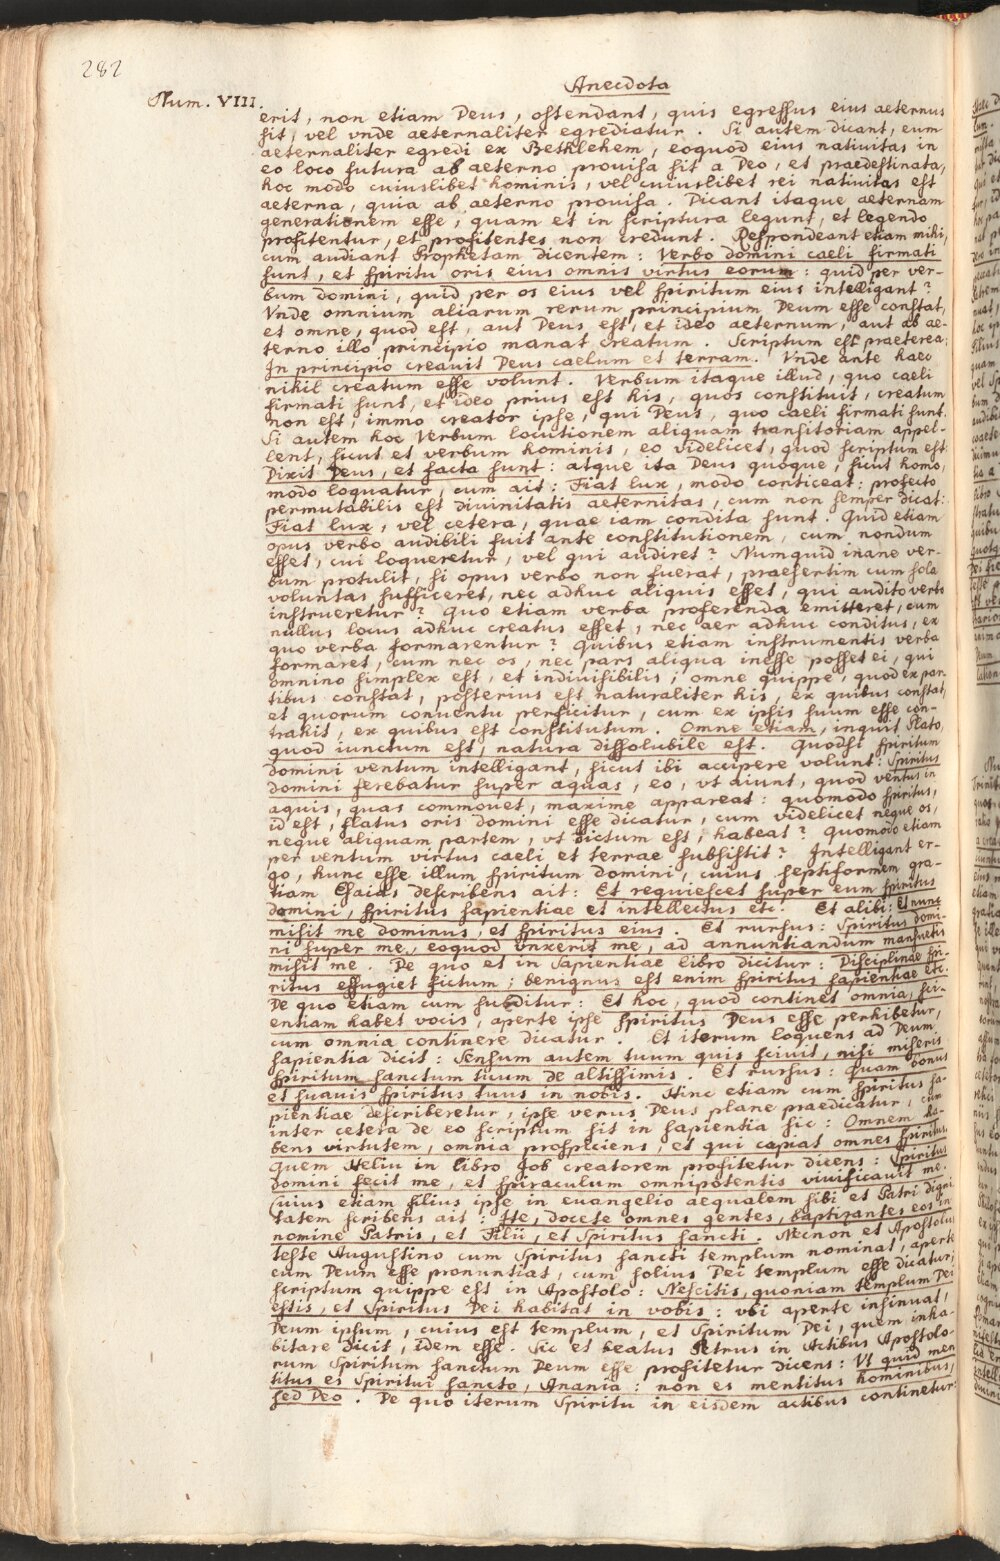 282
Anecdota
Num. VIII.
erit, non etiam Deus, ostendant, quis egressus eius aeternus
sit, vel vnde aeternaliter egrediatur. Si autem dicant, eum
aeternaliter egredi ex Bethlehem, eoquod eius nativitas in
eo loco futura ab aeterno prouisa sit a Deo, et praedestinata,
hoc modo cuiuslibet hominis, vel cuiuslibet rei nativitas est
aeterna, quia ab aeterno prouisa. Dicant itaque aeternam
generationem esse, quam et in scriptura legunt, et legendo
profitentur, et profitentes non credunt. Respondeant etiam mihi,
cum audiant Prophetam dicentem: Verbo domini caeli firmati
sunt, et spiritu oris eius omnis virtus eorum: quid per ver-
bum domini, quid per os eius vel spiritum eius intelligant?
Vnde omnium aliarum rerum principium Deum esse constat,
et omne, quod est, aut Deus est, et ideo aeternum, aut ab ae-
terno illo principio manat creatum. Scriptum est praeterea:
In principio creauit Deus caelum et terram. Vnde ante haec
nihil creatum esse volunt. Verbum itaque illud, quo caeli
firmati sunt, et ideo prius est his, quos constituit, creatum
non est, immo creator ipse, qui Deus, quo caeli firmati sunt.
Si autem hoc Verbum locutionem aliquam transitoriam appel-
lent, sicut et verbum hominis, eo videlicet, quod scriptum est:
Dixit Deus, et facta sunt: atque ita Deus quoque, sicut homo,
modo loquatur, cum ait: Fiat lux, modo conticeat: profecto
permutabilis est diuinitatis aeternitas, cum non semper dicat:
Fiat lux, vel cetera, quae iam condita sunt. Quid etiam
opus verbo audibili fuit ante constitutionem, cum nondum
esset, cui loqueretur, vel qui audiret? Numquid inane ver-
bum protulit, si opus verbo non fuerat, praesertim cum sola
voluntas sufficeret, nec adhuc aliquis esset, qui audito verbo
instrueretur? Quo etiam verba proferenda emitteret, cum
nullus locus adhuc creatus esset, nec aer adhuc conditus, ex
quo verba formarentur? Quibus etiam instrumentis verba
formaret, cum nec os, nec pars aliqua inesse posset ei, qui
omnino simplex est, et indiuisibilis; omne quippe, quod ex par-
tibus constat, posterius est naturaliter his, ex quibus constat,
et quorum conuentu perficitur, cum ex ipsis suum esse con-
trahit, ex quibus est constitutum. Omne etiam, inquit Plato,
quod iunctum est, natura dissolubile est. Quodsi spiritum
domini ventum intelligant, sicut ibi accipere volunt: Spiritus
domini ferebatur super aquas, eo, vt aiunt, quod ventus in
aquis, quas commouet, maxime appareat: quomodo spiritus,
id est, flatus oris domini esse dicatur, cum videlicet neque os,
neque aliquam partem, vt dictum est, habeat? Quomodo etiam
per ventum virtus caeli et terrae subsistit? Intelligant er-
go, hunc esse illum spiritum domini, cuius septiformem gra-
tiam Esaias describens ait: Et requiescet super eum spiritus
domini, spiritus sapientiae et intellectus etc. Et alibi: Et nunc
misit me dominus, et spiritus eius. Et rursus: Spiritus domi-
ni super me, eoquod vnxerit me, ad annuntiandum mansuetis
misit me. De quo et in Sapientiae libro dicitur: Disciplinae spi-
ritus effugiet fictum; benignus est enim spiritus sapientiae etc.
De quo etiam cum subditur: Et hoc, quod continet omnia, sci-
entiam habet vocis, aperte ipse spiritus Deus esse perhibetur,
cum omnia continere dicatur. Et iterum loquens ad Deum
sapientia dicit: Sensum autem tuum quis sciuit, nisi miseris
spiritum sanctum tuum de altissimis. Et rursus: Quam bonus
et suauis spiritus tuus in nobis. Hinc etiam cum spiritus sa-
pientiae describeretur, ipse verus Deus plane praedicatur, cum
inter cetera de eo scriptum sit in sapientia sic: Omnem ha-
bens virtutem, omnia prospiciens, et qui capiat omnes spiritus.
Quem Heliu in libro Job creatorem profitetur dicens: Spiritus
domini fecit me, et spiraculum omnipotentis viuificauit me.
Cuius etiam filius ipse in euangelio aequalem sibi et Patri digni-
tatem scribens ait: Ite, docete omnes gentes, baptizantes eos in
nomine Patris, et Filii, et Spiritus sancti. Necnon et Apostolus
teste Augustino cum Spiritus sancti templum nominat, aperte
eum Deum esse pronuntiat, cum solius Dei templum esse dicatur;
scriptum quippe est in Apostolo: Nescitis, quoniam templum Dei
estis, et Spiritus Dei habitat in vobis: vbi aperte insinuat,
Deum ipsum, cuius est templum, et Spiritum Dei, quem inha-
bitare dicit, idem esse. Sic et beatus Petrus in Actibus Apostolo-
rum Spiritum sanctum Deum esse profitetur dicens: Vt quid men-
titus es Spiritui sancto, Anania: non es mentitus hominibus,
sed Deo. De quo iterum Spiritu in eisdem actibus continetur: